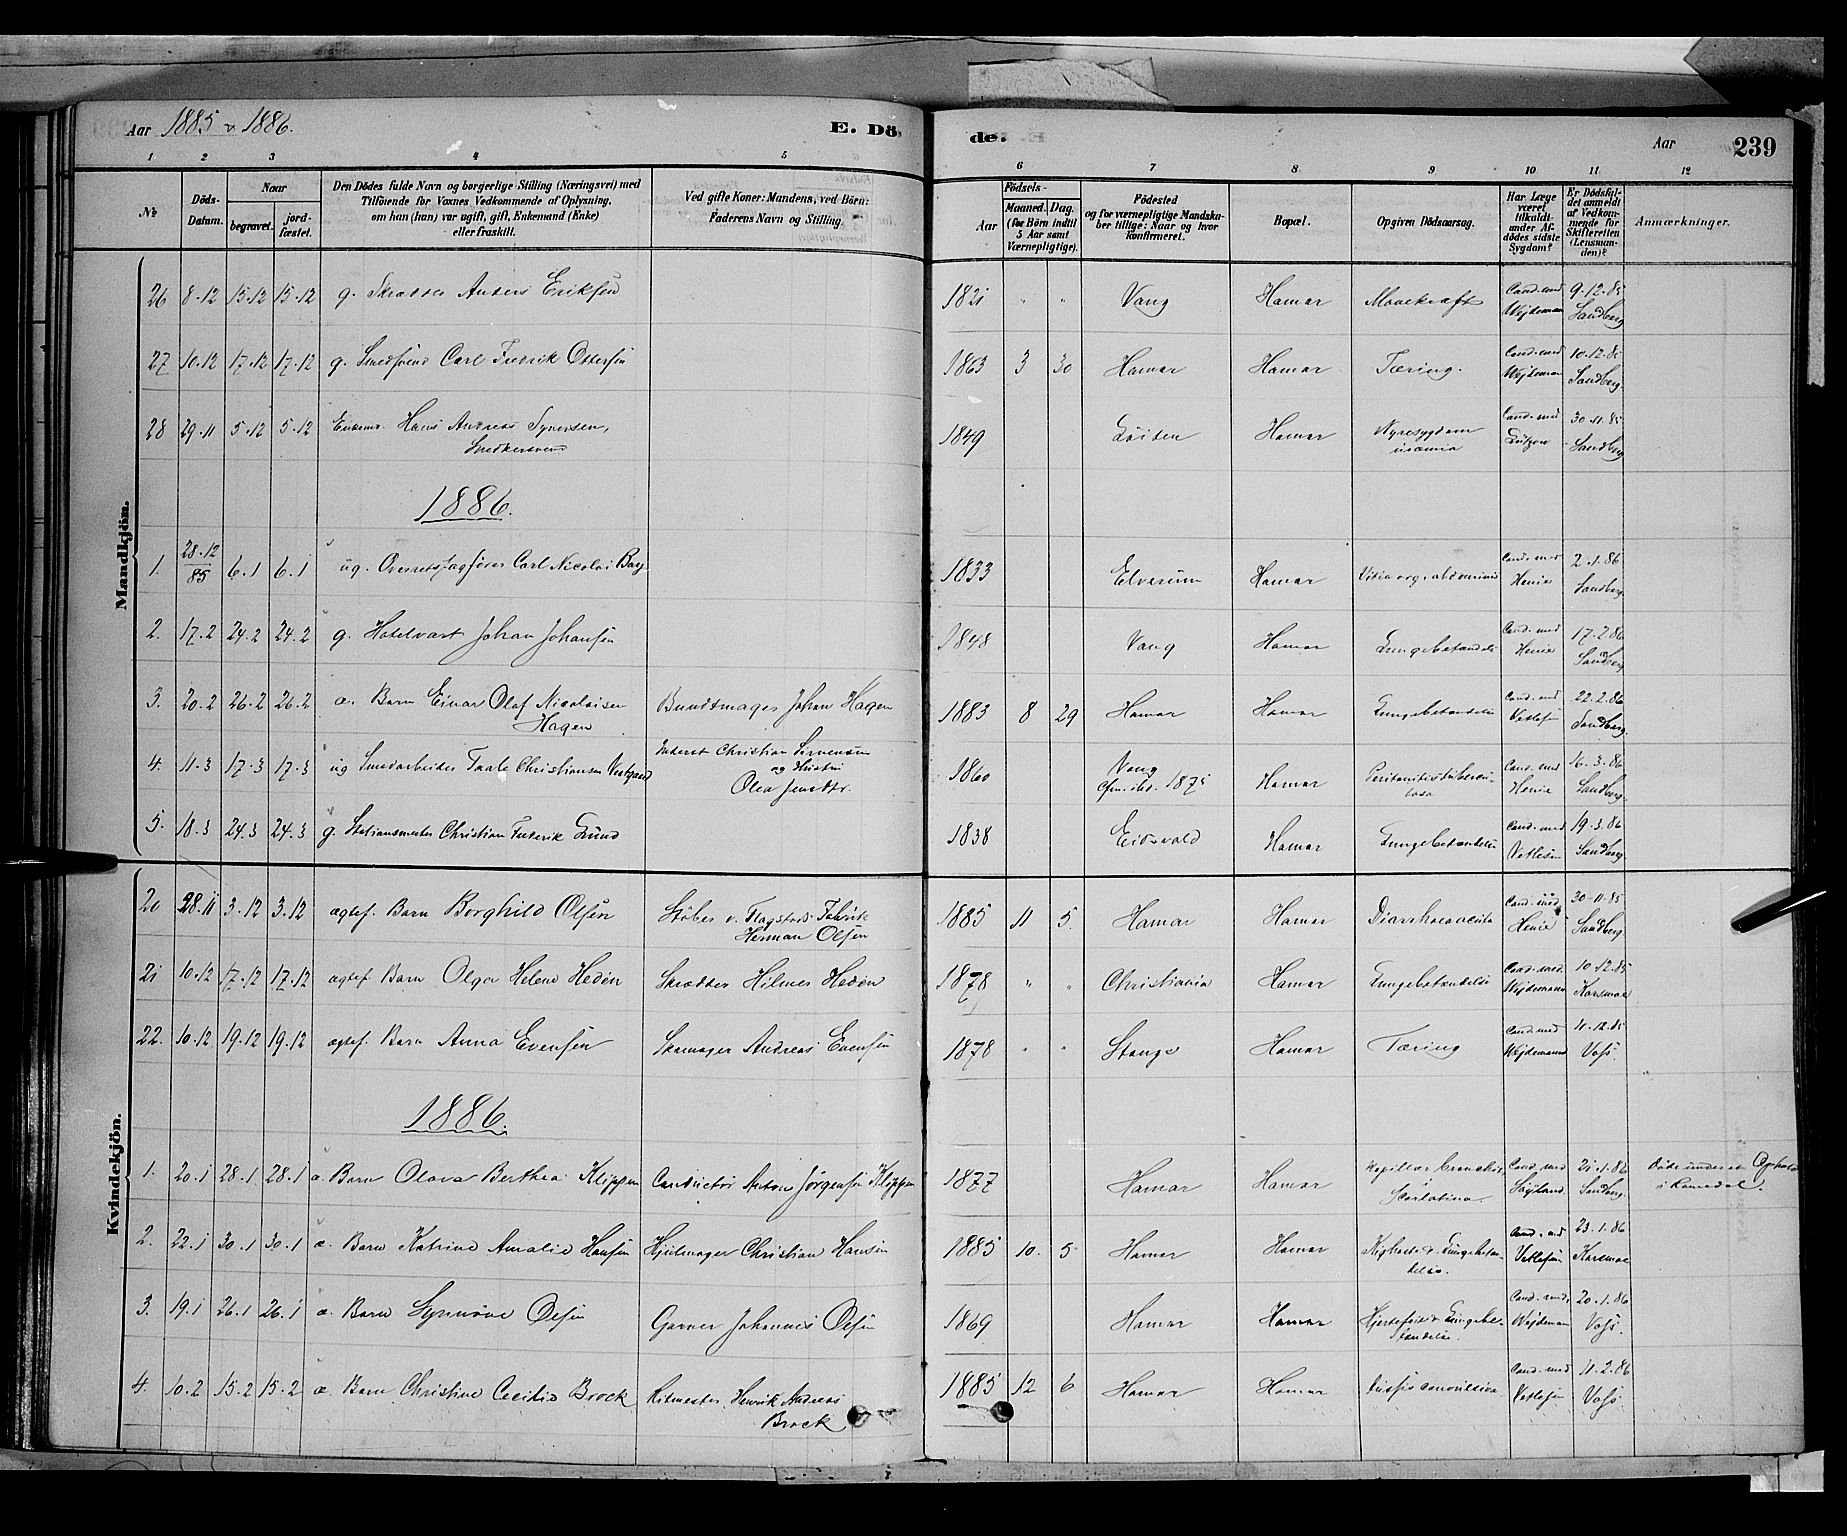 Aar 1885 & 1886.
E. Dö-
de.
Aar
239
1 2 3 4 5 6 7 8 9 10 11 12
No
Döds-Datum.
Naar
begravet.
jord-fæstet.
Den Dödes fulde Navn og borgerlige Stilling (Næringsvei) med
Tilföiende for Voxnes Vedkommende af Oplysning,
om han (hun) var ugift, gift, Enkemand (Enke)
eller fraskilt.
Ved gifte Koner: Mandens, ved Börn:
Faderens Navn og Stilling.
Födsels-
Aar
Maaned. Dag.
(for Börn indtil
5 Aar samt
Værnepligtige).
Födested
og for værnepligtige Mandska-
ber tillige: Naar og hvor
konfirmeret.
Bopæl.
Opgiven Dödsaarsag.
Har Læge
været
tilkaldt
under Af-
dödes sidste
Sygdom?
Er Dödsfal-
det anmeldt
af Vedkom-
mende for
Skifteretten
(Lensman-
den)?
Anmærkninger.
Mandkjön.
26 8.12 15.12 15.12 g. Skrædder Anders Eriksen 1821 " " Vang Hamar Mavekræft Cand. med Wejdeman 9.12.85 Sandberg
27 10.12 17.12 17.12 g. Smedsvend Carl Fredrik Ottersen 1863 3 30 Hamar Hamar Tæring. Cand. med Wejdeman 10.12.85 Sandberg.
28 29.11 5.12 5.12 Enkem. Hans Andreas Syversen, Snedkersvend 1849 Löiten Hamar Nyresygdom uræmia Cand. med 30.11.85 Sandberg
1886.
1. 28.12/85 6.1 6.1 ug. Overretssagförer Carl Nicolai Bay 1833 Elverum Hamar Cand. med Henie 2.1.86 Sandberg.
2. 17.2 24.2 24.2 g. Hotelvært Johan Johansen 1848 Vang Hamar Lungebetændelse Cand. med Henie 17.2.86 Sandberg
3. 20.2 26.2 26.2 æ. Barn Einar Olaf Nicolaisen Hagen Bundtmager Johan Hagen 1883 8 29 Hamar Hamar Lungebetændelse Cand. med Vetlesen 22.2.86 Sandberg.
4. 11.3 17.3 17.3 ug Smedarbeider Christiansen Vestgaard Inderst Christian Sörensen og Hustru Olea 1860 Vang 1875 Hamar Peritonitis tubercu-losa Cand. med Henie 16.3.86 Sandberg.
5. 18.3 24.3 24.3 g. Stationsmester Christian Frederik Grund 1838 Eidsvold Hamar Lungebetændelse Cand. med Vetlesen 19.3.86 Sandberg.
Kvindekjön.
20 28.11 3.12 3.12 ægtef. Barn Borghild Olsen Stöber v. Flagstads Fabrik Herman Olsen 1885 11 5. Hamar Hamar Diarrhoea acuta Cand. med Henie 30-11-85 Sandberg
21 10.12 17.12 17.12 ægtef. Barn Olga Helene Hedén Skrædder Hilmer Hedén 1878 " " Christiania Hamar Lungebetændelse Cand. med. Wejdemann 10.12.85 Korsmoe
22. 10.12 19.12 19.12 ægtef. Barn Anna Evensen Skomager Andreas Evensen 1878 " " Stange Hamar Tæring Cand. med Wejdemann 11.12.85 Vofs.
1886.
1. 20.1 28.1 28.1 æ. Barn Olava Berthea Klippen Conductör Anton Jörgensen Klippen 1877 Hamar Hamar Kapillær bronchit Scarlatina. Cand. med 21.1.86 Sandberg. Döde under et Ophold i Romedal.
2. 22.1 30.1 30.1 æ. Barn Katrine Amalie Hansen Hjulmager Christian Hansen 1885 10. 5 Hamar Hamar Kighoste & Lungebetæn-delse. Cand. med Vetlesen 23.1.86 Korsmoe
3. 19.1 26.1 26.1 æ. Barn Synnöve Olsen Garver Johannes Olsen 1869 Hamar Hamar Hjertefeil & Lungebe-tændelse. Cand. med. Wejdeman 20.1.86 Vofs.
4. 10.2 15.2 15.2 æ. Barn Christine Cecilie Brock Ritmester Henrik Andreas Brock 1885 12 6 Hamar Hamar Tussis convulsiva Cand. med Vetlesen 11.2.86 Vofs.